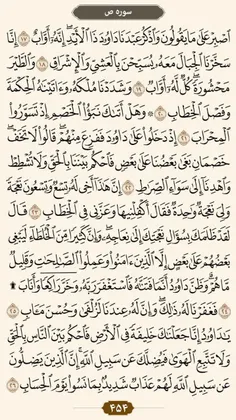 سوره ص
ٱصْبِرْ عَلَىٰ مَا يَقُولُونَ وَٱذْكُرْ عَبْدَنَا دَاوُۥدَ ذَا ٱلْأَيْدِ إِنَّهُۥٓ أَوَّابٌ ١٧ إِنَّا
سَخَّرْنَا ٱلْجِبَالَ مَعَهُۥ يُسَبِّحْنَ بِٱلْعَشِىِّ وَٱلْإِشْرَاقِ ١٨ وَٱلطَّيْرَ
مَحْشُورَةً كُلٌّ لَّهُۥٓ أَوَّابٌ ١٩ وَشَدَدْنَا مُلْكَهُۥ وَءَاتَيْنَٰهُ ٱلْحِكْمَةَ
وَفَصْلَ ٱلْخِطَابِ ٢٠ ۞ وَهَلْ أَتَىٰكَ نَبَؤُا۟ ٱلْخَصْمِ إِذْ تَسَوَّرُوا۟
ٱلْمِحْرَابَ ٢١ إِذْ دَخَلُوا۟ عَلَىٰ دَاوُۥدَ فَفَزِعَ مِنْهُمْ قَالُوا۟ لَا تَخَفْ
خَصْمَانِ بَغَىٰ بَعْضُنَا عَلَىٰ بَعْضٍ فَٱحْكُم بَيْنَنَا بِٱلْحَقِّ وَلَا تُشْطِطْ
وَٱهْدِنَآ إِلَىٰ سَوَآءِ ٱلصِّرَٰطِ ٢٢ إِنَّ هَٰذَآ أَخِى لَهُۥ تِسْعٌ وَتِسْعُونَ نَعْجَةً
وَلِىَ نَعْجَةٌ وَٰحِدَةٌ فَقَالَ أَكْفِلْنِيهَا وَعَزَّنِى فِى ٱلْخِطَابِ ٢٣ قَالَ
لَقَدْ ظَلَمَكَ بِسُؤَالِ نَعْجَتِكَ إِلَىٰ نِعَاجِهِۦ وَإِنَّ كَثِيرًا مِّنَ ٱلْخُلَطَآءِ لَيَبْغِى
بَعْضُهُمْ عَلَىٰ بَعْضٍ إِلَّا ٱلَّذِينَ ءَامَنُوا۟ وَعَمِلُوا۟ ٱلصَّٰلِحَٰتِ وَقَلِيلٌ
مَّا هُمْ وَظَنَّ دَاوُۥدُ أَنَّمَا فَتَنَّٰهُ فَٱسْتَغْفَرَ رَبَّهُۥ وَخَرَّ رَاكِعًا وَأَنَابَ ۩
٢٤ فَغَفَرْنَا لَهُۥ ذَٰلِكَ وَإِنَّ لَهُۥ عِندَنَا لَزُلْفَىٰ وَحُسْنَ مَـَٔابٍ ٢٥
يَٰدَاوُۥدُ إِنَّا جَعَلْنَٰكَ خَلِيفَةً فِى ٱلْأَرْضِ فَٱحْكُم بَيْنَ ٱلنَّاسِ بِٱلْحَقِّ
وَلَا تَتَّبِعِ ٱلْهَوَىٰ فَيُضِلَّكَ عَن سَبِيلِ ٱللَّهِ إِنَّ ٱلَّذِينَ يَضِلُّونَ
عَن سَبِيلِ ٱللَّهِ لَهُمْ عَذَابٌ شَدِيدٌۢ بِمَا نَسُوا۟ يَوْمَ ٱلْحِسَابِ ٢٦
۴۵۴